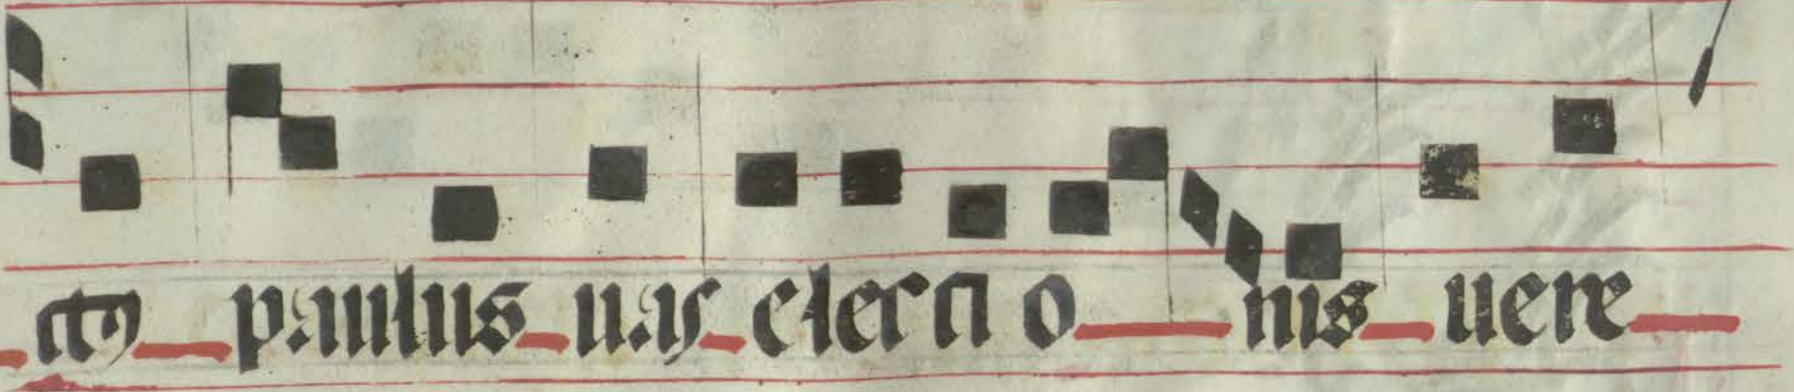 ctꝰ paulus uas electi o nis uere